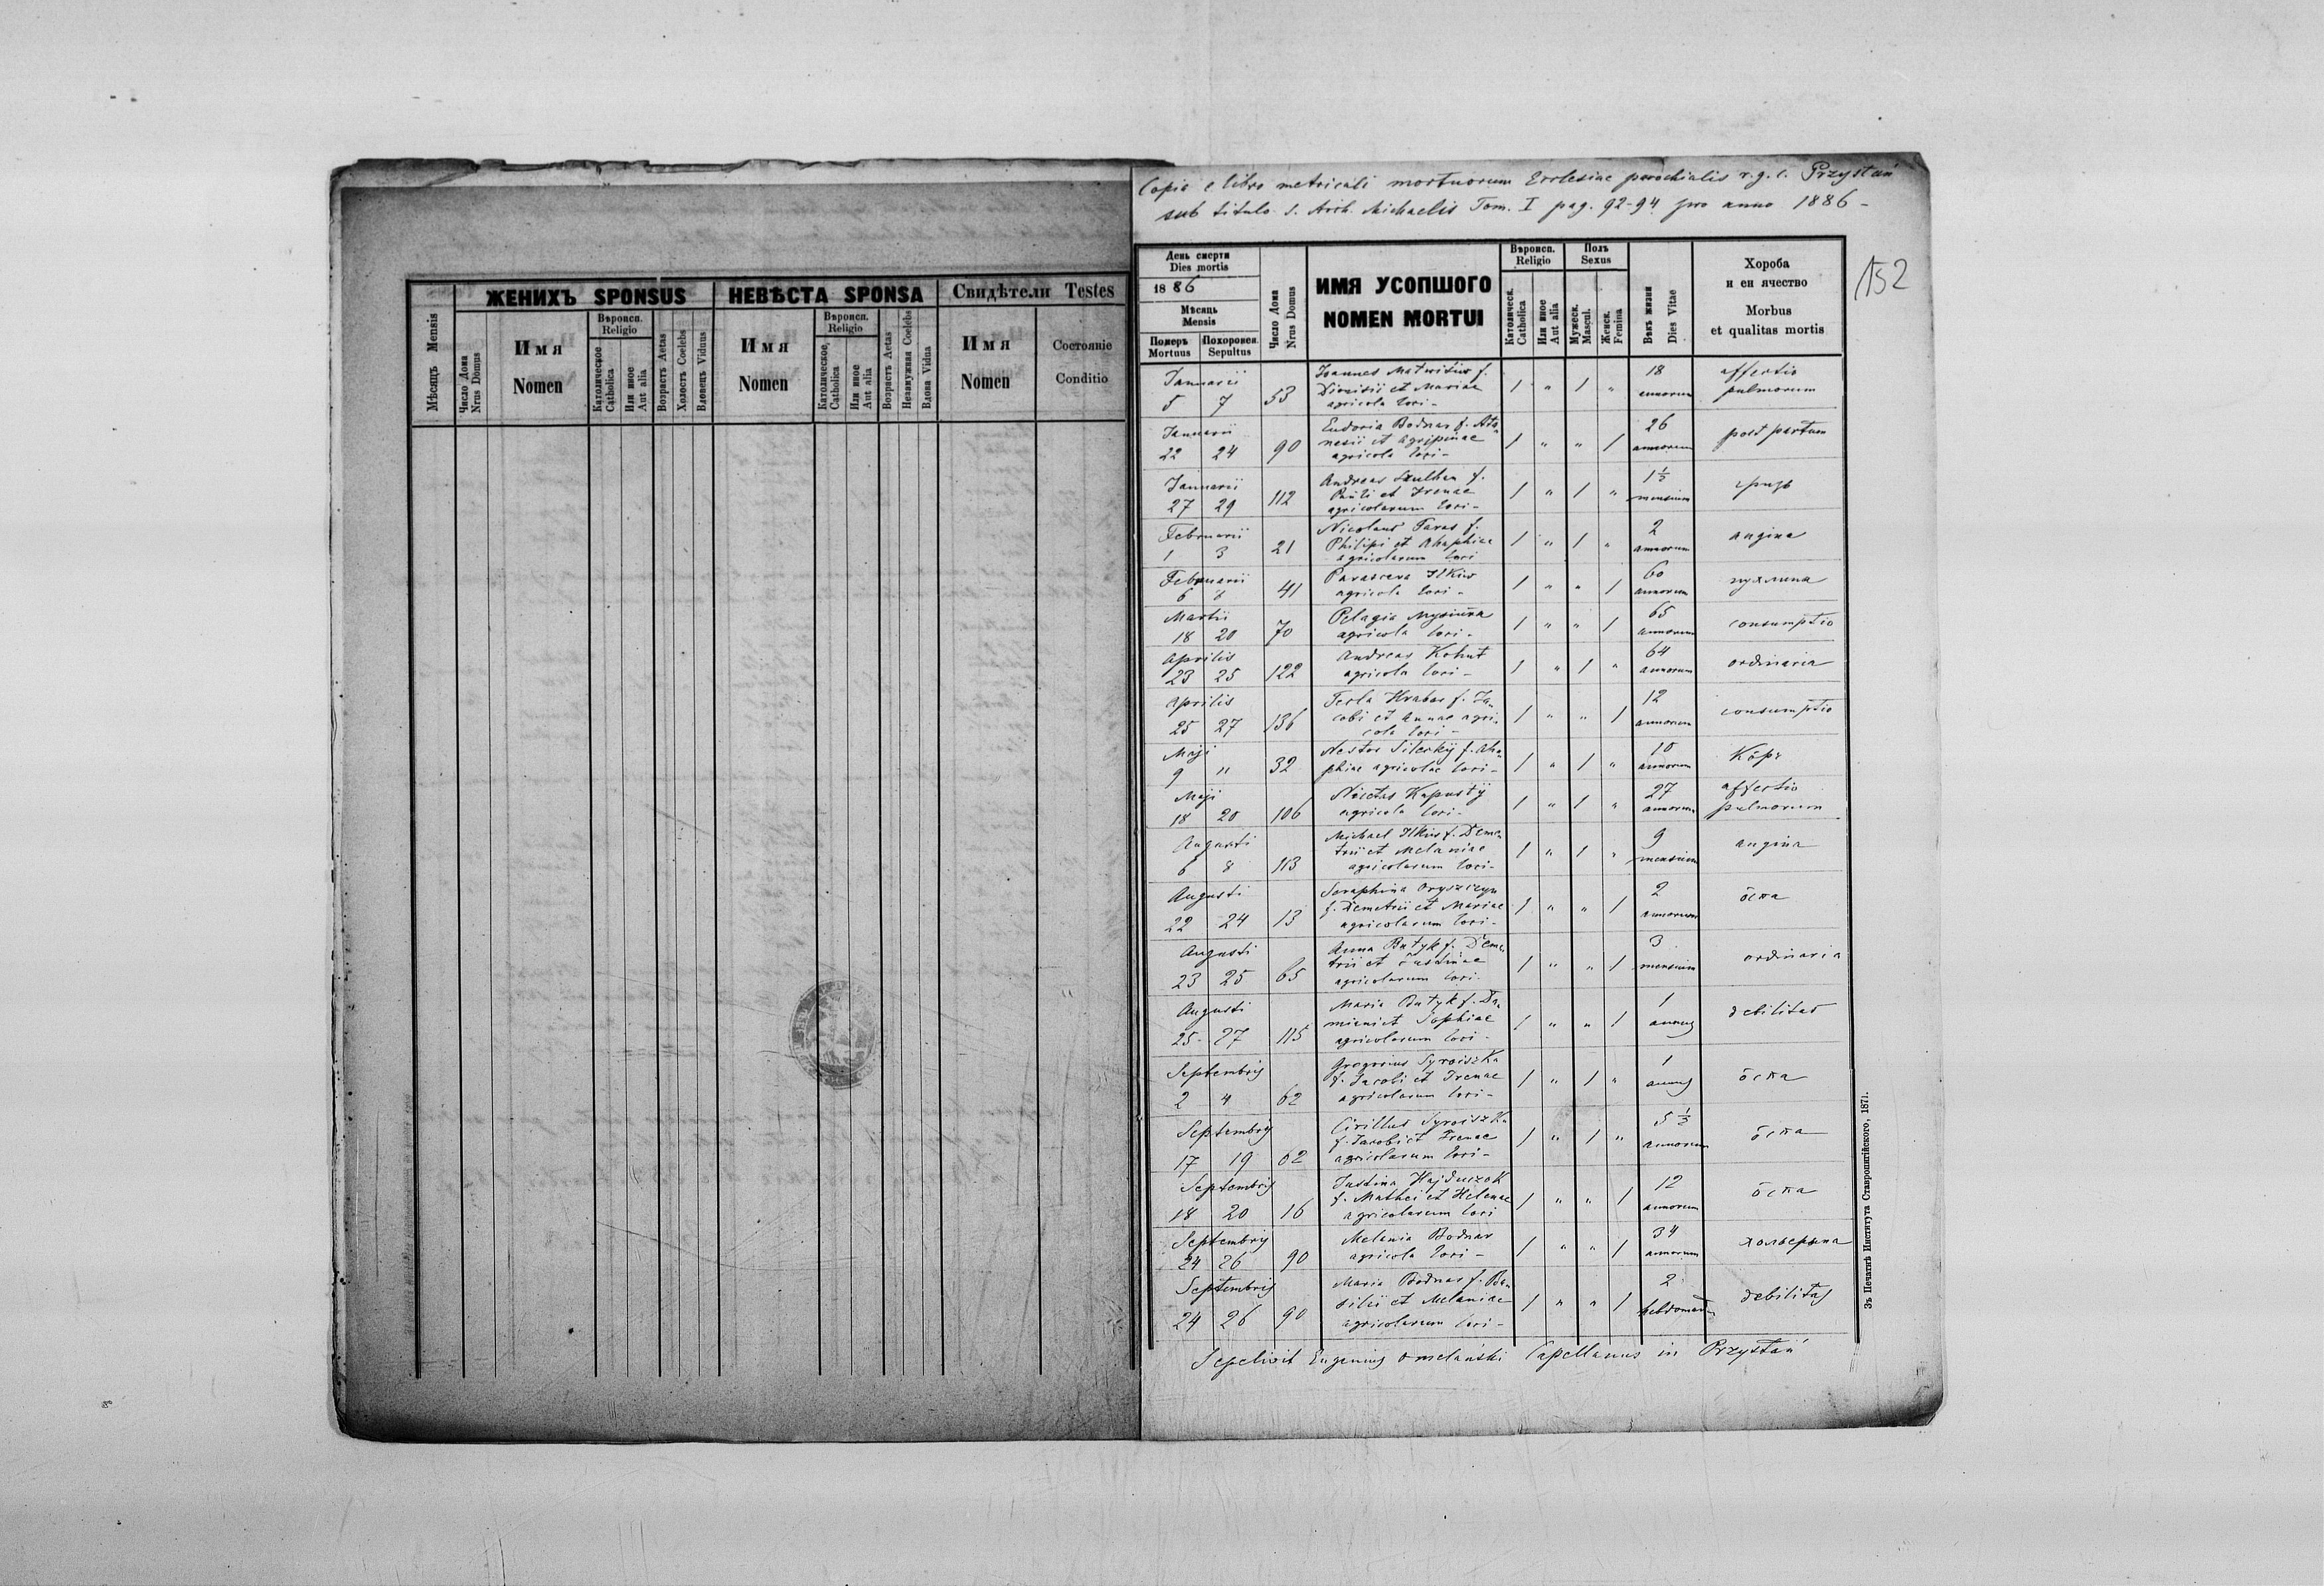 ЖЕНИХЪ SPONSUS
НЕВѢСТА SPONSA
Свидѣтели Testes
Мѣсяць Mensis
Число Дома
Nrus Domus
Имя
Nomen
Вѣроисп.
Religio
Католическое
Catholica
Или иное
Aut alia
Возрастъ Aetas
Холостъ Coelebs
Вдовець Viduus
Имя
Nomen
Вѣроисп.
Religio
Католическое,
Catholica
Или иное
Aut alia
Возрастъ Aetas
Незамужная Coelebs
Вдова Vidua
Имя
Nomen
Состояніе
Conditio
Copia e libro metricali mortuorum Ecclesiae parochialis r.g.c. Przystań
sub titulo S. Arch. Michaelis Tom. I pag. 92-94 pro anno 1886 -
152
День смерти
Dies mortis
1886
Мѣсяць
Mensis
Померъ
Mortuus
Похоронен.
Sepultus
Число Дома
Nrus Domus
ИМЯ УСОПШОГО
NOMEN MORTUI
Вѣроисп.
Religio
Католическ.
Catholica
Или иное
Aut alia
Полъ
Sexus
Мужеск.
Mascul.
Женск.
Femina
Вѣкъ жизни
Dies Vitae
Хороба
и еи ячество
Morbus
et qualitas mortis
Januarii
5 7 53
Joannes f.
Dionisii et Mariae
agricola loci -
1 " 1 "
18
annorum
affectio
pulmorum
Januarii
22 24 90
Eudoxia Bodnar f. Ata-
nasii et Agripinae
agricola loci -
1 " " 1
26
annorum
post partum
Januarii
27 29 112
Andreas f.
Pauli et Irenae
agricolarum loci -
1 " 1 "
mensium
Februarii
1 3 21
Nicolaus Taras f.
Philipi et Ahaphiae
agricolarum loci
1 " 1 "
2
annorum
angina
Februarii
6 8 41
Parasceva Ilkiw
agricola loci -
1 " " 1
60
annorum
пухлина
Martii
18 20 70
Pelagia
agricola loci -
1 " " 1
65
annorum
consumptio
Aprilis
23 25 122
Andreas Kohut
agricola loci -
1 " 1 "
64
annorum
ordinaria
Aprilis
25 27 136
Tecla Hrabar f. Ja-
cobi et Annae agri-
cola loci -
1 " " 1
12
annorum
consumptio
Maji
9 11 32
Nestor f. Aha-
phiae agricolae loci -
1 " 1 "
10
annorum
Кôръ
Maji
18 20 106
Nicetas Kapustij
agricola loci -
1 " 1 "
27
annorum
affectio
pulmorum
Augusti
6 8 113
Michael Ilkiw f. Deme-
trii et Melaniae
agricolarum loci -
1 " 1 "
9
mensium
angina
Augusti
22 24 13
Seraphina Oryszczyn
f. Demetrii et Mariae
agricolarum loci -
1 " " 1
2
annorum
ôспа
Augusti
23 25 65
Anna Batyk f. Deme-
trii et Justinae
agricolarum loci -
1 " " 1
3
mensium
ordinaria
Augusti
25 27 115
Maria Batyk f. Da-
miani et Sophiae
agricolarum loci -
1 " " 1
1
annus
debilitas
Septembris
2 4 62
Gregorius Syroiszka
f. Jacobi et Irenae
agricolarum loci -
1 " 1 "
1
annus
ôспа
Septembris
17 19 62
Cirillus Syroiszka
f. Jacobi et Irenae
agricolarum loci -
1 " 1 "
annorum
ôспа
Septembris
18 20 16
Justina Hajduczok
f. Mathei et Helenae
agricolarum loci
1 " " 1
12
annorum
ôспа
Septembris
24 26 90
Melania Bodnar
agricola loci -
1 " " 1
34
annorum
Septembris
24 26 90
Maria Bodnar f. Ba-
silii et Melaniae
agricolarum loci -
1 " " 1
2
debilitas
Sepelivit Eugenius Omelański Capellanus in Przystań
Зъ Печатнѣ Института Ставропигійского, 1871.